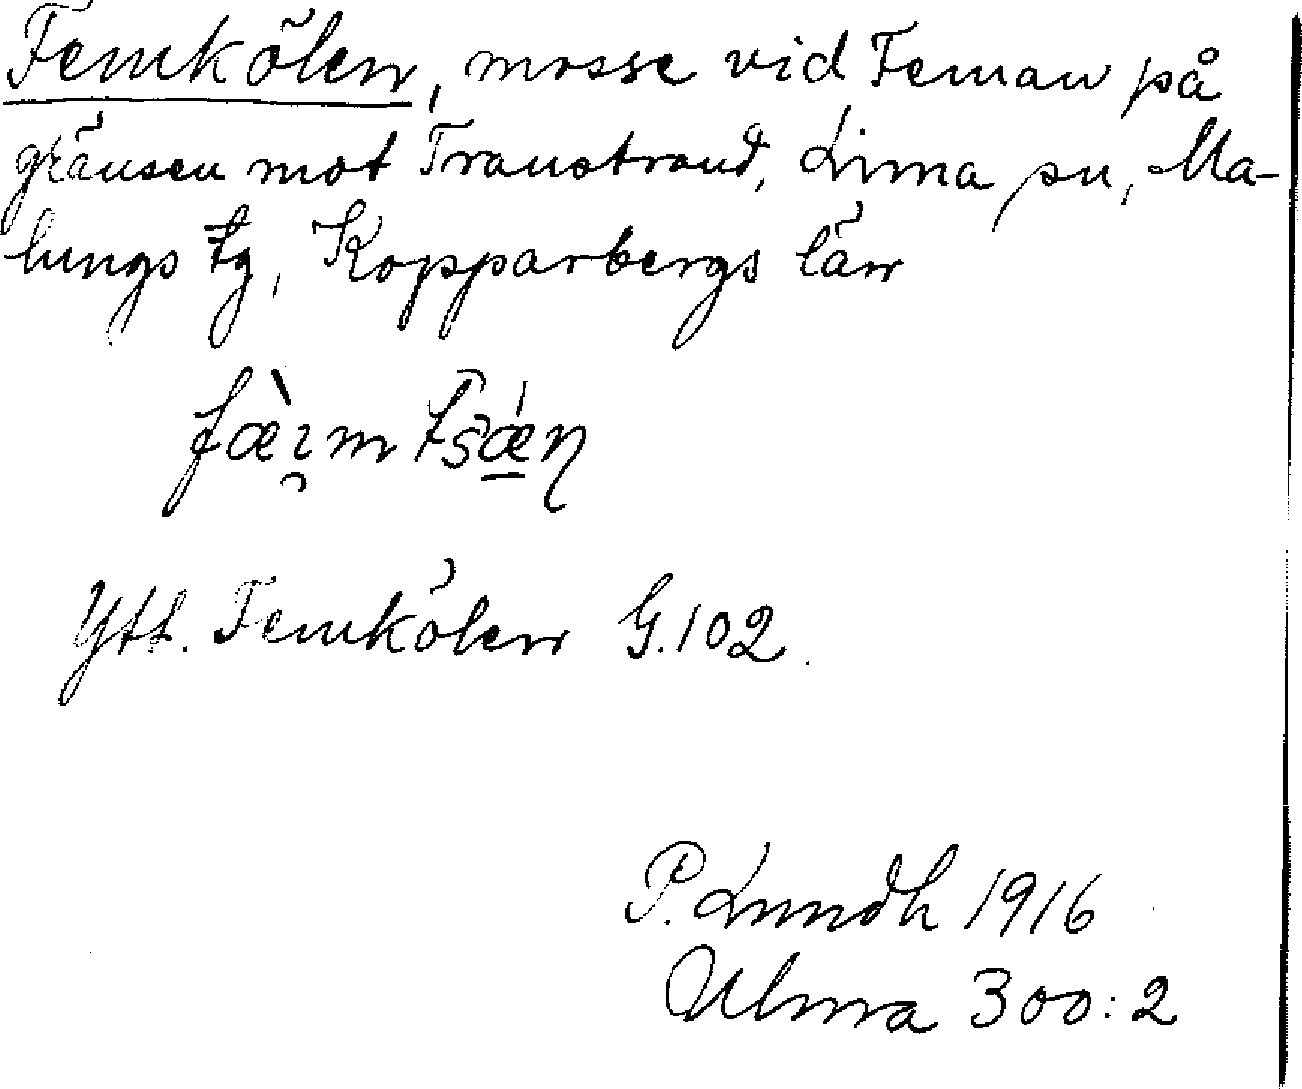 Femkölen, mosse vid Feman på
gränsen mot Transtrand, Lima sn, Ma-
lungs tg, Kopparbergs län
fæ̀ı̯m tsǽ̱ƞ
Ytt. Femkölen G.102.
P. Lundh 1916
Ulma 300:2